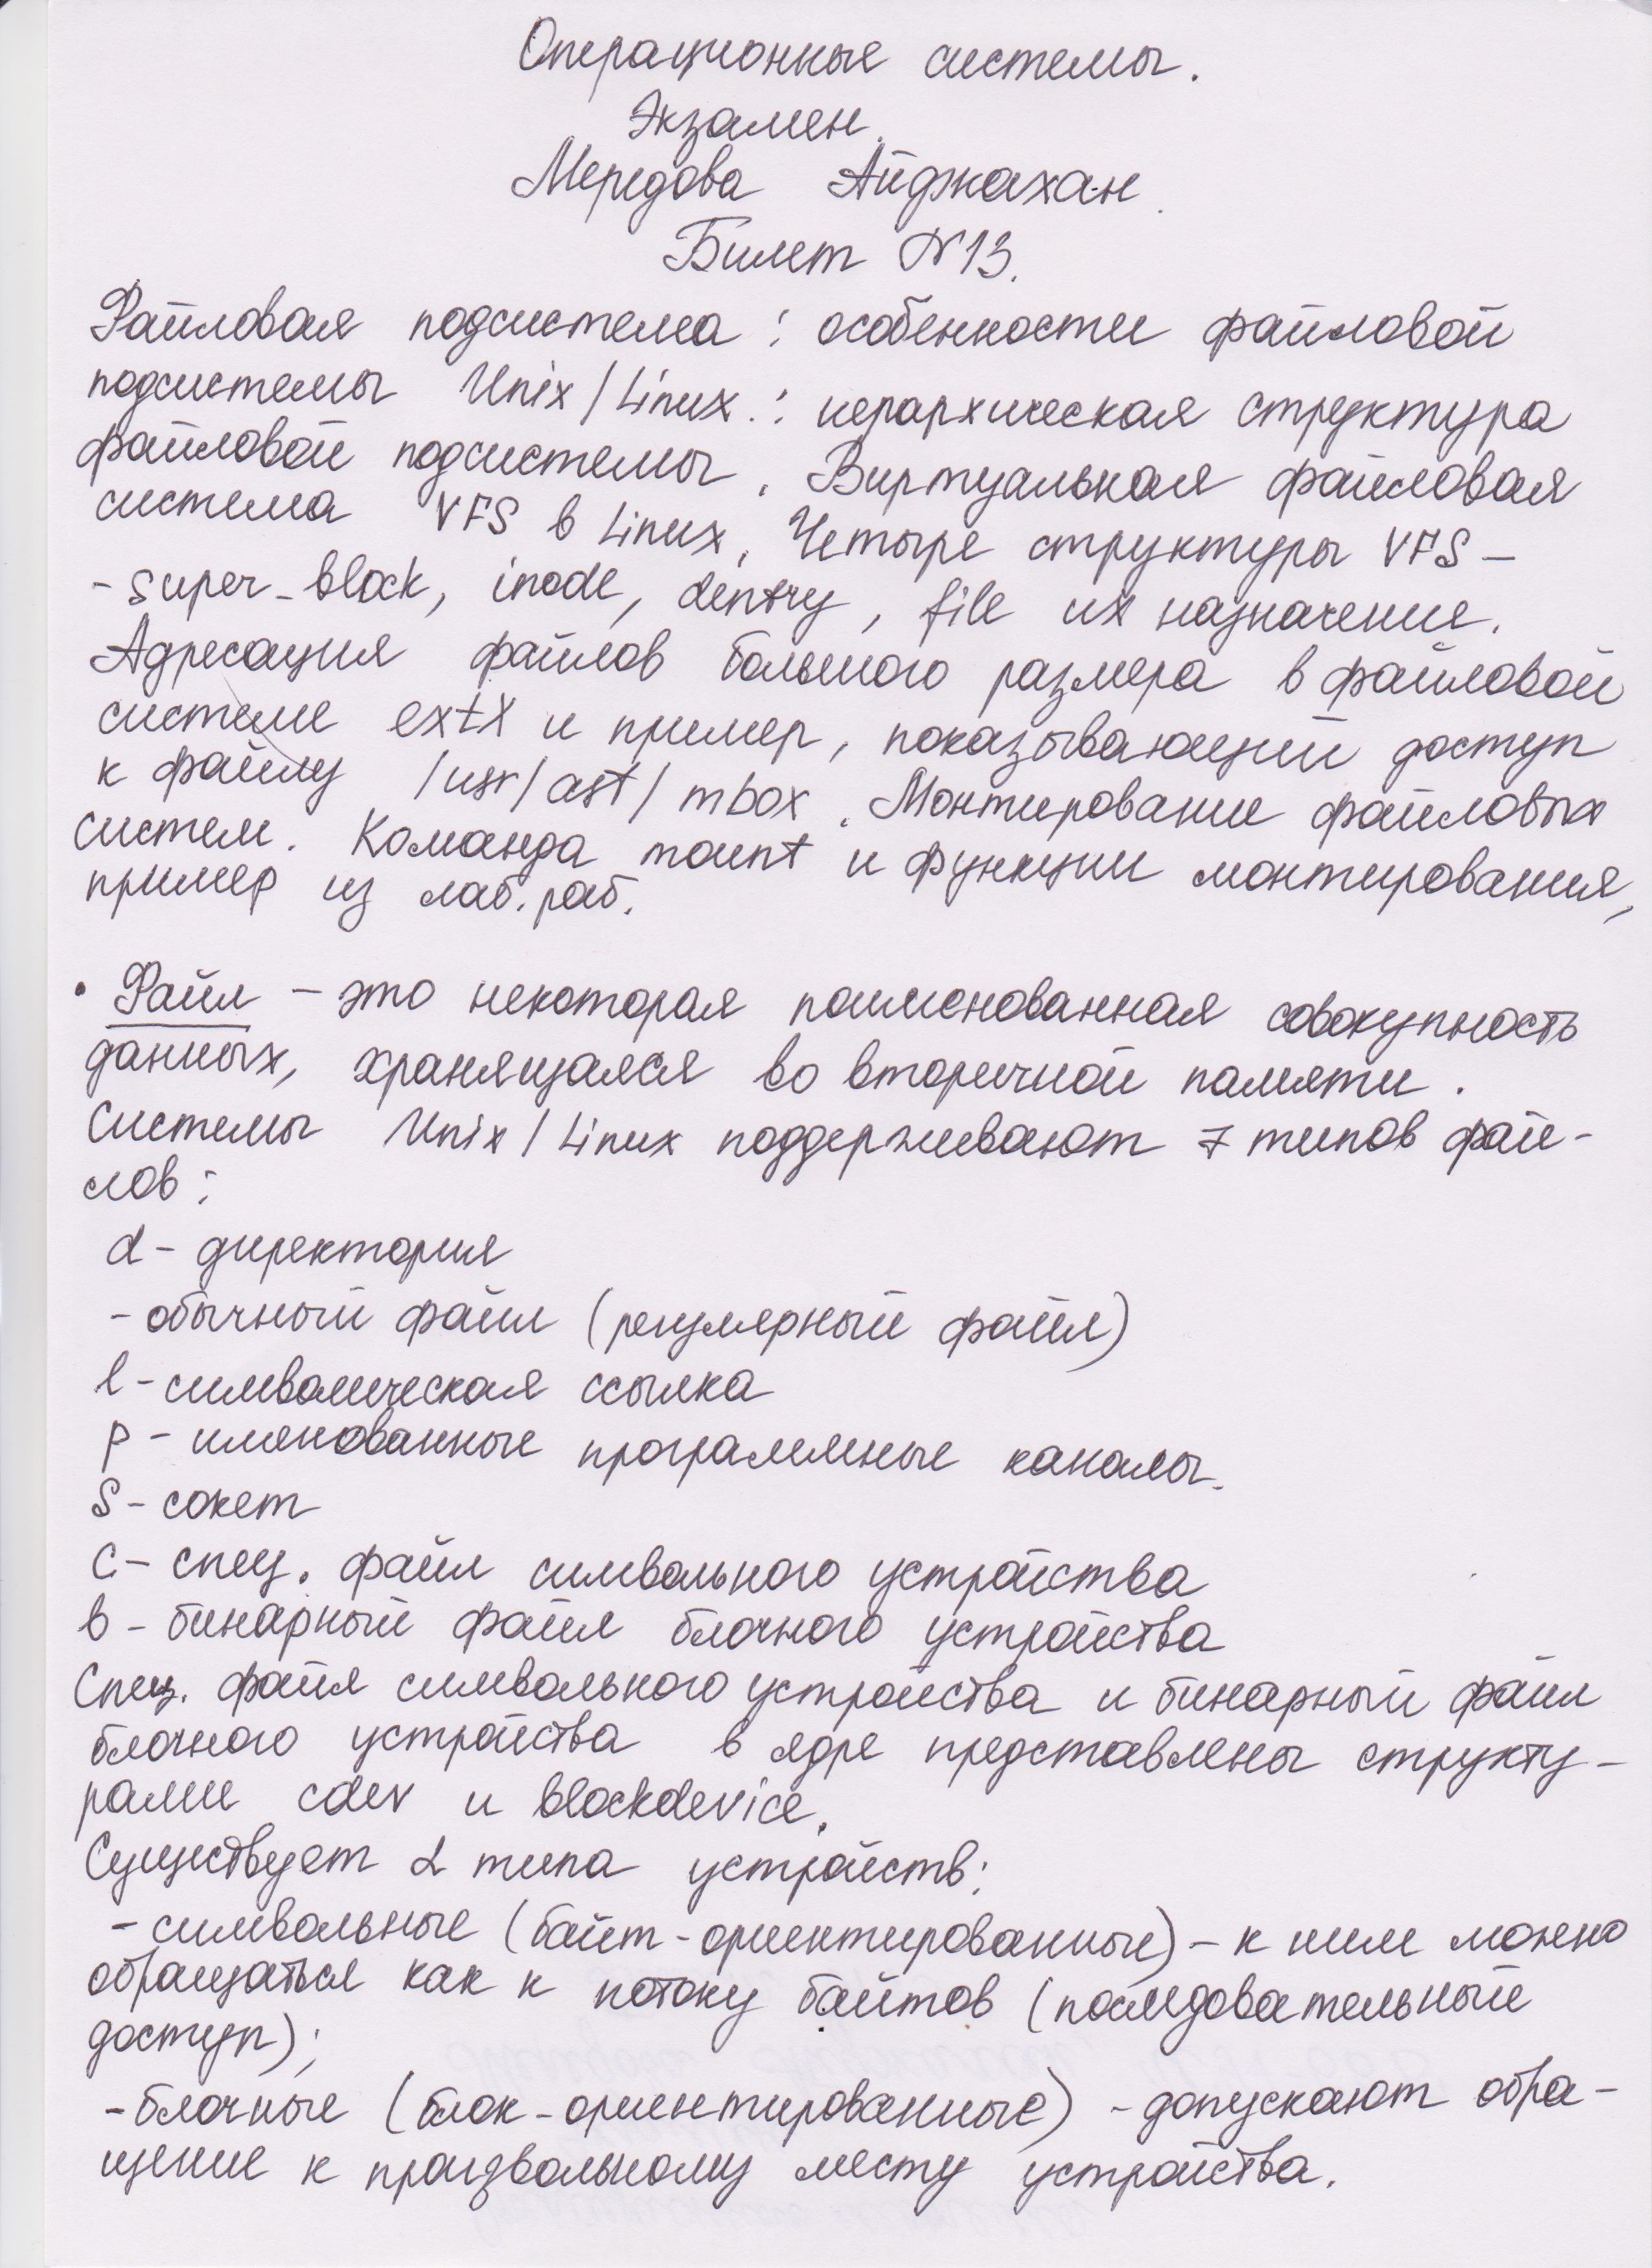 Операционные системы.
Экзамен.
Мередова Айджахан.
Билет №13.
Файловая подсистема: особенности файловой
подсистемы Unix/Linux.: иерархическая структура
файловой подсистемы. Виртуальная файловая
система VFS в Linux. Четыре структуры VFS –
- super_block, inode, dentry, file их назначение.
Адресация файлов большого размера в файловой
системе extX и пример, показывающий доступ
к файлу /usr/ast/mbox. Монтирование файловых
систем. Команда mount и функции монтирования,
пример из лаб. раб.
• Файл – это некоторая поименованная совокупность
данных, хранящаяся во вторичной памяти.
Системы Unix/Linux поддерживают 7 типов фай-
лов:
d - директория
- обычный файл (регулярный файл)
l - символическая ссылка
p - именованные программные каналы.
s - сокет
c - спец. файл символьного устройства
b - бинарный файл блочного устройства
Спец. файл символьного устройства и бинарный файл
блочного устройства в ядре представлены структу-
рами cdev и blockdevice.
Существует 2 типа устройств:
- символьные (байт-ориентированные) – к ним можно
обращаться как к потоку байтов (последовательный
доступ);
- блочные (блок-ориентированные) - допускают обра-
щение к произвольному месту устройства.